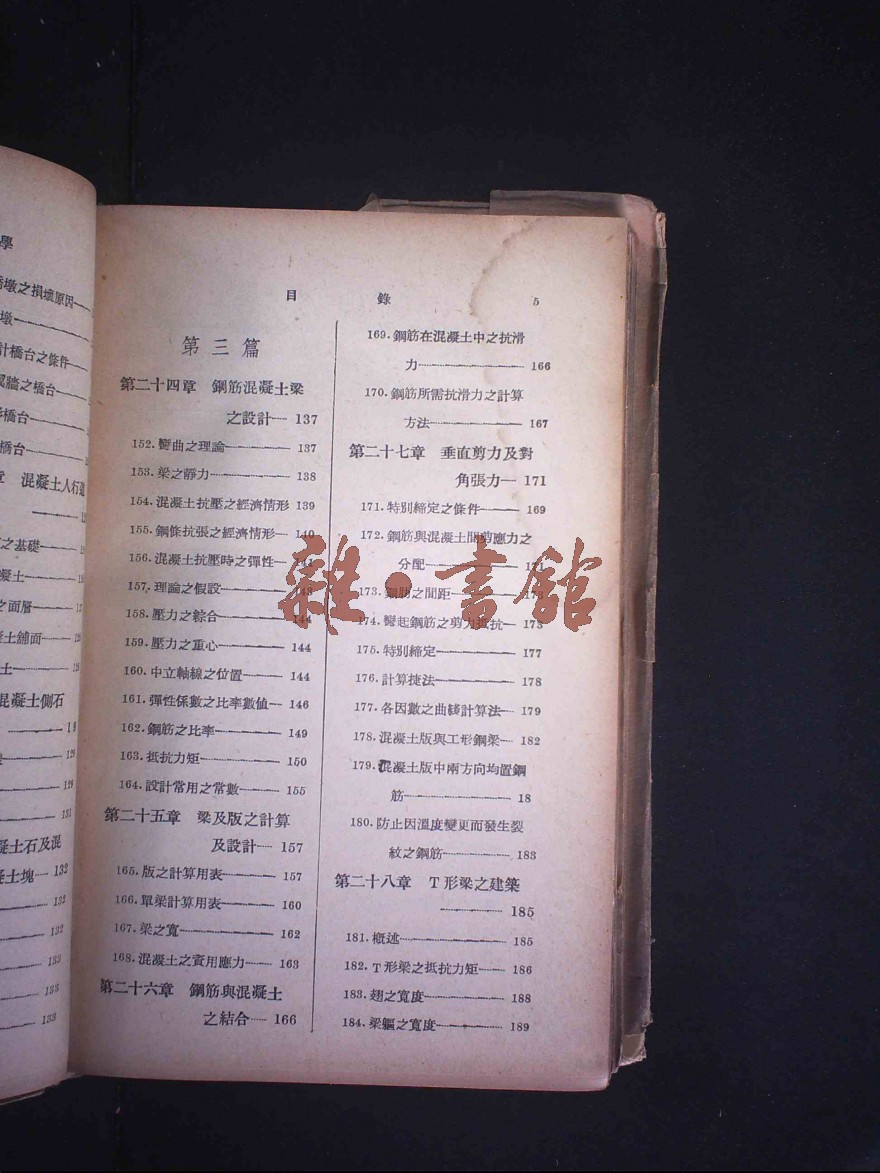 學
橋墩之損壞原因
墩
計橋台之條件
翼牆之橋台
橋台
橋台
章 混凝土人行道
之基礎
凝土
之面層
凝土舖面
土
混凝土側石
凝土石及混
凝土塊 132
132
132
133
133
133
目 錄 5
第三篇
第二十四章 鋼筋混凝土梁
之設計 137
152. 彎曲之理論 137
153. 梁之靜力 138
154. 混凝土抗壓之經濟情形 139
155. 鋼條抗張之經濟情形 140
156. 混凝土抗壓時之彈性 141
157. 理論之假設 143
158. 壓力之綜合 144
159. 壓力之重心 144
160. 中立軸線之位置 144
161. 彈性係數之比率數值 146
162. 鋼筋之比率 149
163. 抵抗力矩 150
164. 設計常用之常數 155
第二十五章 梁及版之計算
及設計 157
165. 版之計算用表 157
166. 單梁計算用表 160
167. 梁之寬 162
168. 混凝土之實用應力 163
第二十六章 鋼筋與混凝土
之結合 166
169. 鋼筋在混凝土中之抗滑
力 166
170. 鋼筋所需抗滑力之計算
方法 167
第二十七章 垂直剪力及對
角張力 171
171. 特別締定之條件 169
172. 鋼筋與混凝土間剪應力之
分配 171
173. 鋼筋之間距 173
174. 彎起鋼筋之剪力抵抗 173
175. 特別締定 177
176. 計算捷法 178
177. 各因數之曲綫計算法 179
178. 混凝土版與工形鋼梁 182
179. 混凝土版中兩方向均置鋼
筋 18
180. 防止因溫度變更而發生裂
紋之鋼筋 183
第二十八章 T形梁之建築
185
181. 概述 185
182. T形梁之抵抗力矩 186
183. 翅之寬度 188
184. 梁軀之寬度 189
雜·書館